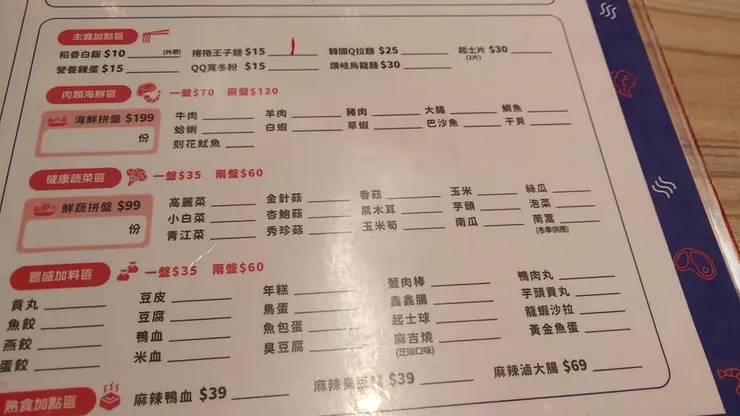 主食加點區
稻香白飯 $10 (外帶) 捲捲王子麵 $15 韓國Q拉麵 $25 起士片 $30
(2片)
營養雞蛋 $15 QQ寬冬粉 $15 讚岐烏龍麵 $30
肉類海鮮區 一盤$70 兩盤$120
海鮮拼盤 $199
份
牛肉 羊肉 豬肉 大腸 鯛魚
蛤蜊 白蝦 草蝦 巴沙魚 干貝
刻花魷魚
健康蔬菜區 一盤$35 兩盤$60
鮮蔬拼盤 $99
份
高麗菜 金針菇 香菇 玉米 絲瓜
小白菜 杏鮑菇 黑木耳 芋頭 泡菜
青江菜 秀珍菇 玉米筍 南瓜 茼蒿
(冬季供應)
豐盛加料區 一盤$35 兩盤$60
貢丸 豆皮 年糕 蟹肉棒 鴨肉丸
魚餃 豆腐 鳥蛋 鑫鑫腸 芋頭貢丸
燕餃 鴨血 魚包蛋 起士球 龍蝦沙拉
蛋餃 米血 臭豆腐 麻吉燒 黃金魚蛋
(芝麻口味)
熟食加點區 麻辣鴨血 $39 麻辣臭豆腐 $39 麻辣滷大腸 $69